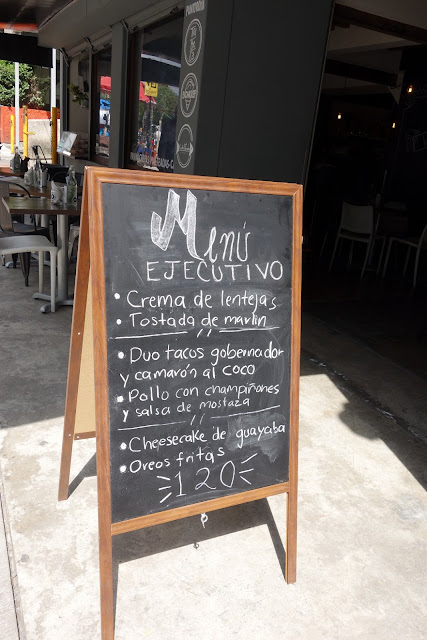 Menú
EJECUTIVO
• Crema de lentejas
• Tostada de marlin
• Duo tacos gobernador
y camarón al coco
• Pollo con champiñones
y salsa de mostaza
• Cheesecake de guayaba
• Oreos fritas
120